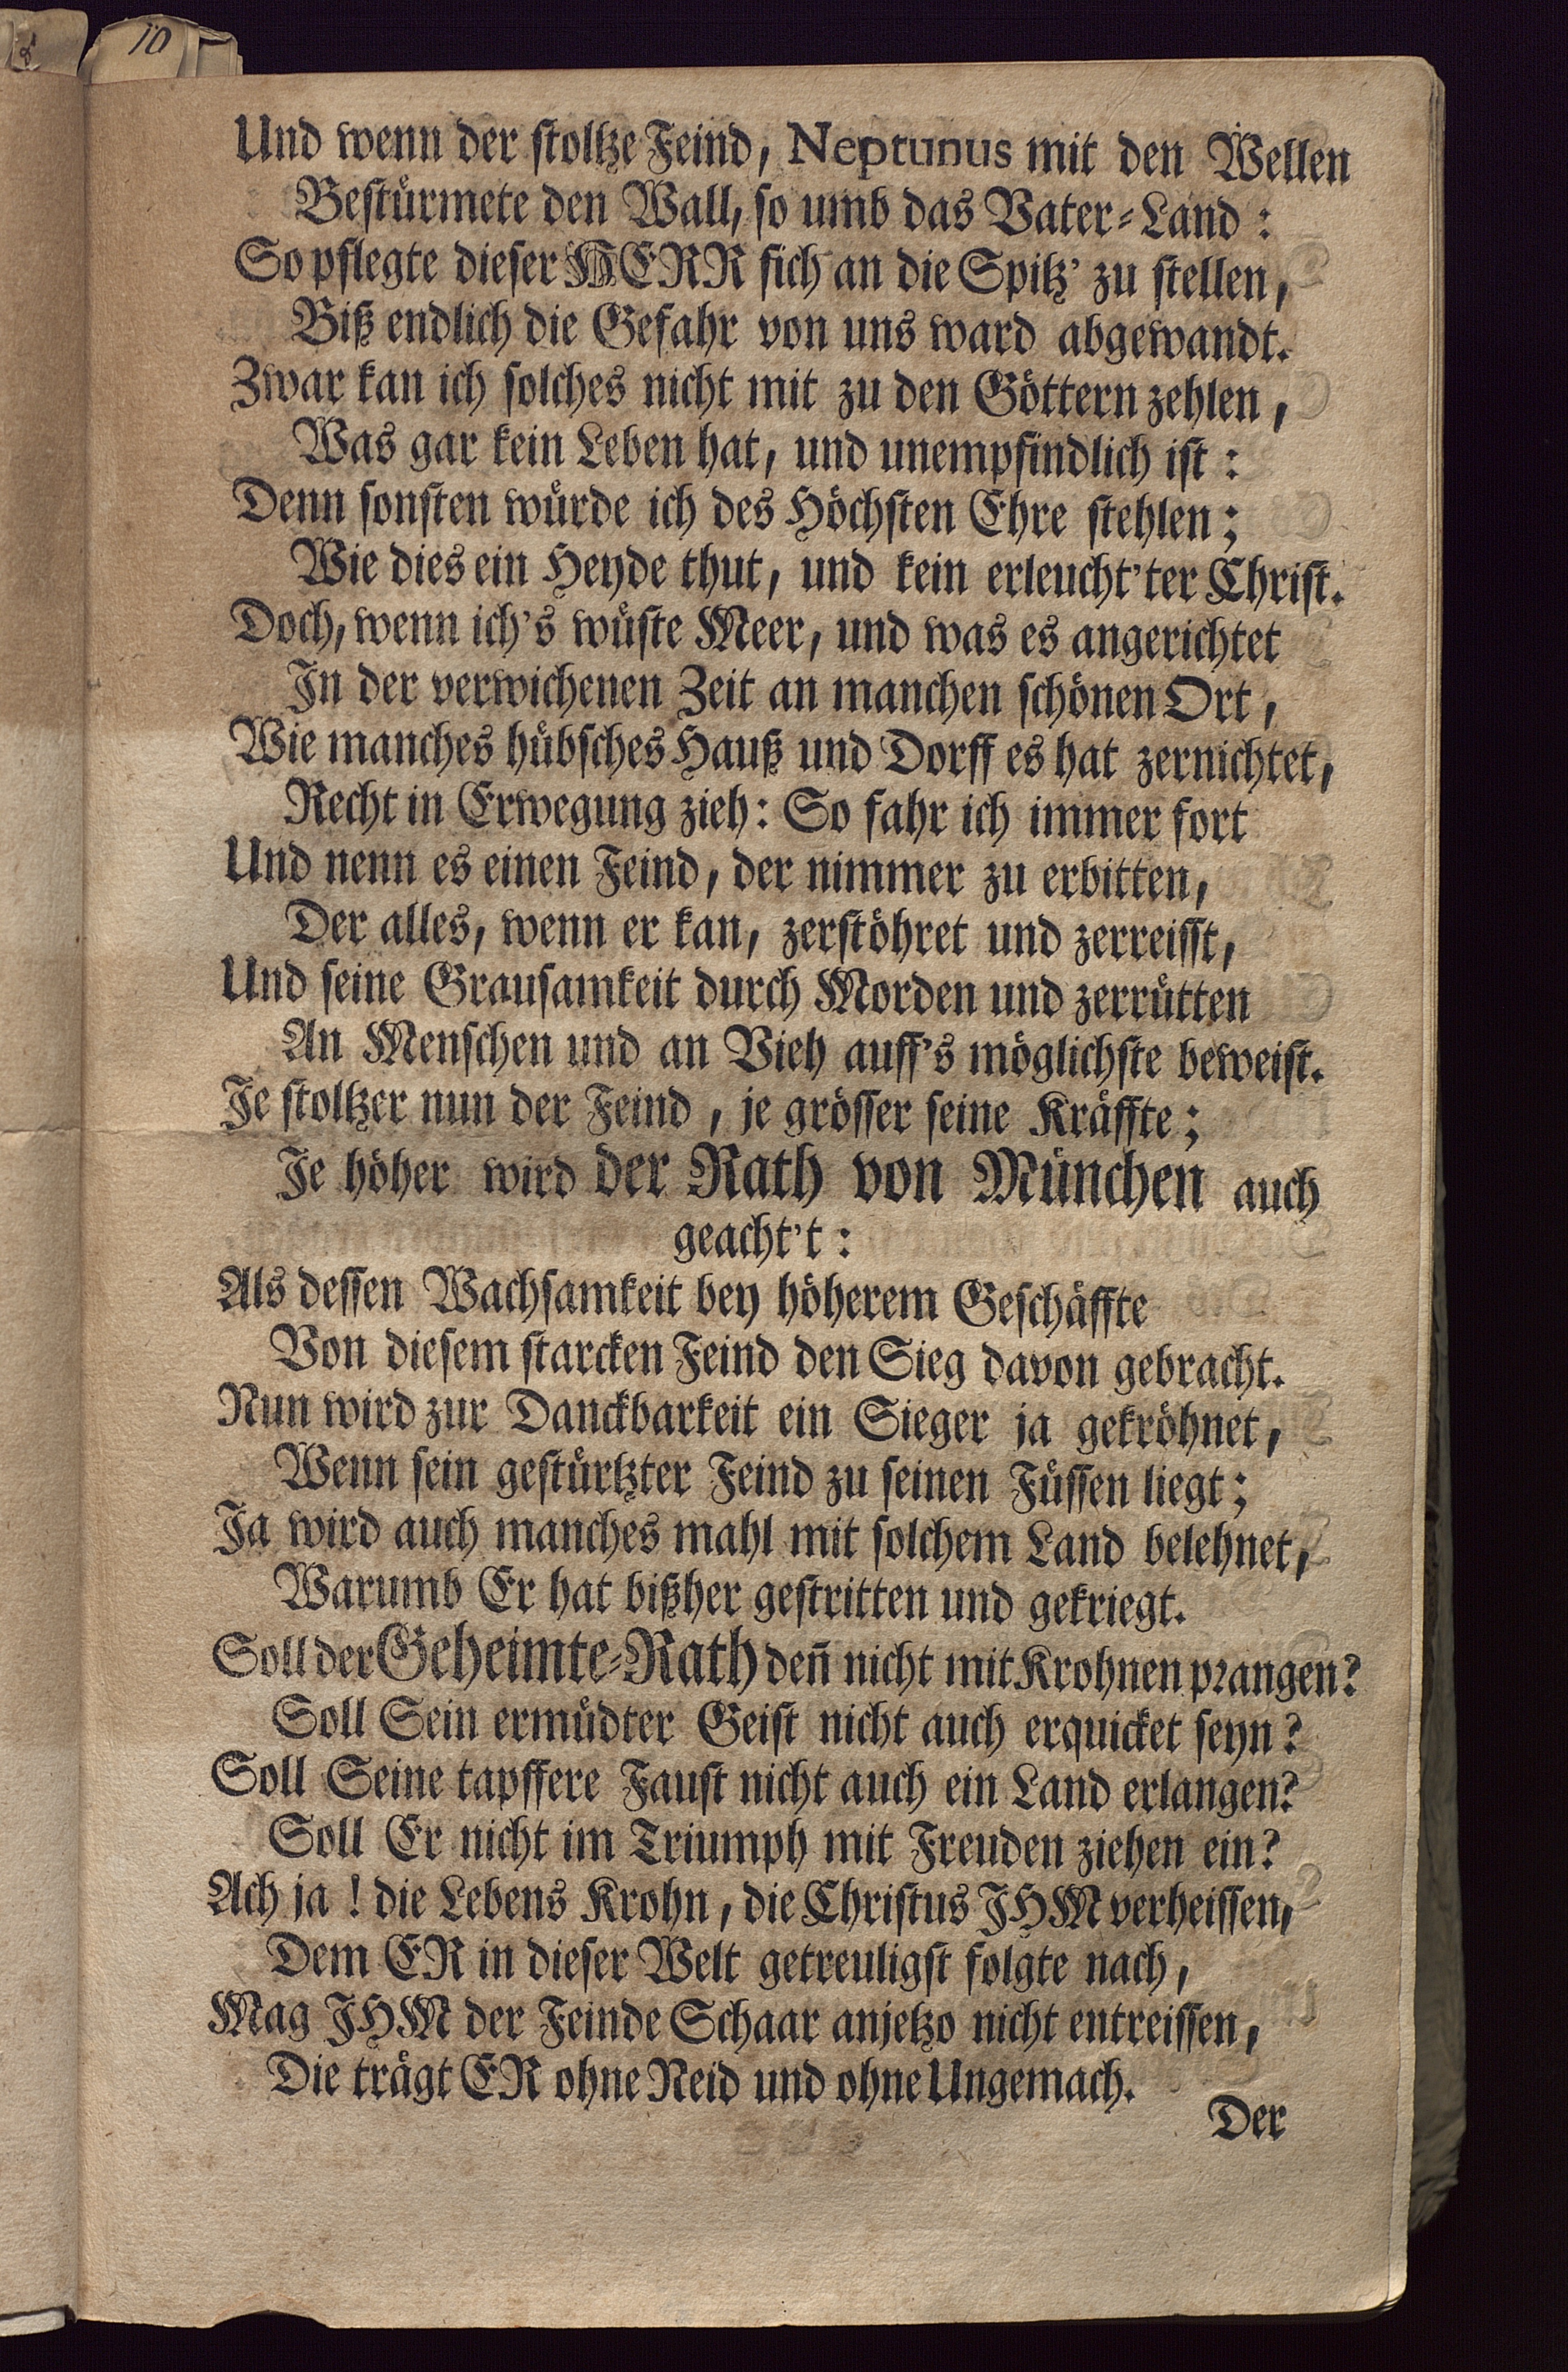 10
Und wenn der stoltze Feind, Neptunus mit den Wellen
Bestürmete den Wall, so umb das Vater-Land:
So pflegte dieser HERR sich an die Spitz' zu stellen,
Biß endlich die Gefahr von uns ward abgewandt.
Zwar kan ich solches nicht mit zu den Göttern zehlen,
Was gar kein Leben hat, und unempfindlich ist:
Denn sonsten würde ich des Höchsten Ehre stehlen;
Wie dies ein Heyde thut, und kein erleucht'ter Christ.
Doch, wenn ich's wüste Meer, und was es angerichtet
In der verwichenen Zeit an manchen schönen Ort,
Wie manches hübsches Hauß und Dorff es hat zernichtet,
Recht in Erwegung zieh: So fahr ich immer fort
Und nenn es einen Feind, der nimmer zu erbitten,
Der alles, wenn er kan, zerstöhret und zerreisst,
Und seine Grausamkeit durch Morden und zerrütten
An Menschen und an Vieh auff's möglichste beweist.
Je stoltzer nun der Feind, je grösser seine Kräffte;
Je höher wird der Rath von München auch
geacht't:
Als dessen Wachsamkeit bey höherem Geschäffte
Von diesem starcken Feind den Sieg davon gebracht.
Nun wird zur Danckbarkeit ein Sieger ja gekröhnet,
Wenn sein gestürtzter Feind zu seinen Füssen liegt;
Ja wird auch manches mahl mit solchem Land belehnet,
Warumb Er hat bißher gestritten und gekriegt.
Soll der Geheimte-Rath deñ nicht mit Krohnen prangen?
Soll Sein ermüdter Geist nicht auch erquicket seyn?
Soll Seine tapffere Faust nicht auch ein Land erlangen?
Soll Er nicht im Triumph mit Freuden ziehen ein?
Ach ja! die Lebens Krohn, die Christus JHM verheissen,
Dem ER in dieser Welt getreuligst folgte nach,
Mag JHM der Feinde Schaar anjetzo nicht entreissen,
Die trägt ER ohne Neid und ohne Ungemach.
Der